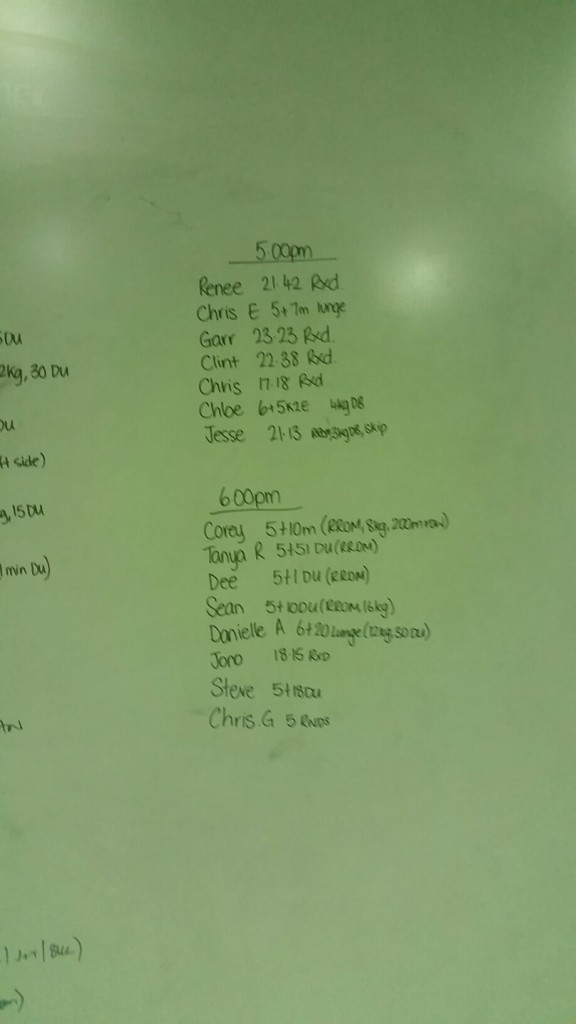 5.00pm
Renee 21.42 Rxd
Chris E 5+7m lunge
Garr 23.23 Rxd.
Clint 22.38 Rxd.
Chris 17.18 Rxd
Chloe 6+5K2E 4kgDB
Jesse 21.13 skip
6.00pm
Corey 5+10m (RROM, 8kg, 200m row)
Tanya R 5+51 DU (RROM)
Dee 5+1 DU (RROM)
Sean 5+10DU (RROM 16kg)
Danielle A 6+20 Lunge (12kg, 30 DU)
Jono 18.15 RxD
Steve 5+18DU
Chris.G 5 RNDS
DU
2kg, 30 DU
DU
side)
g, 15 DU
1 min DU)